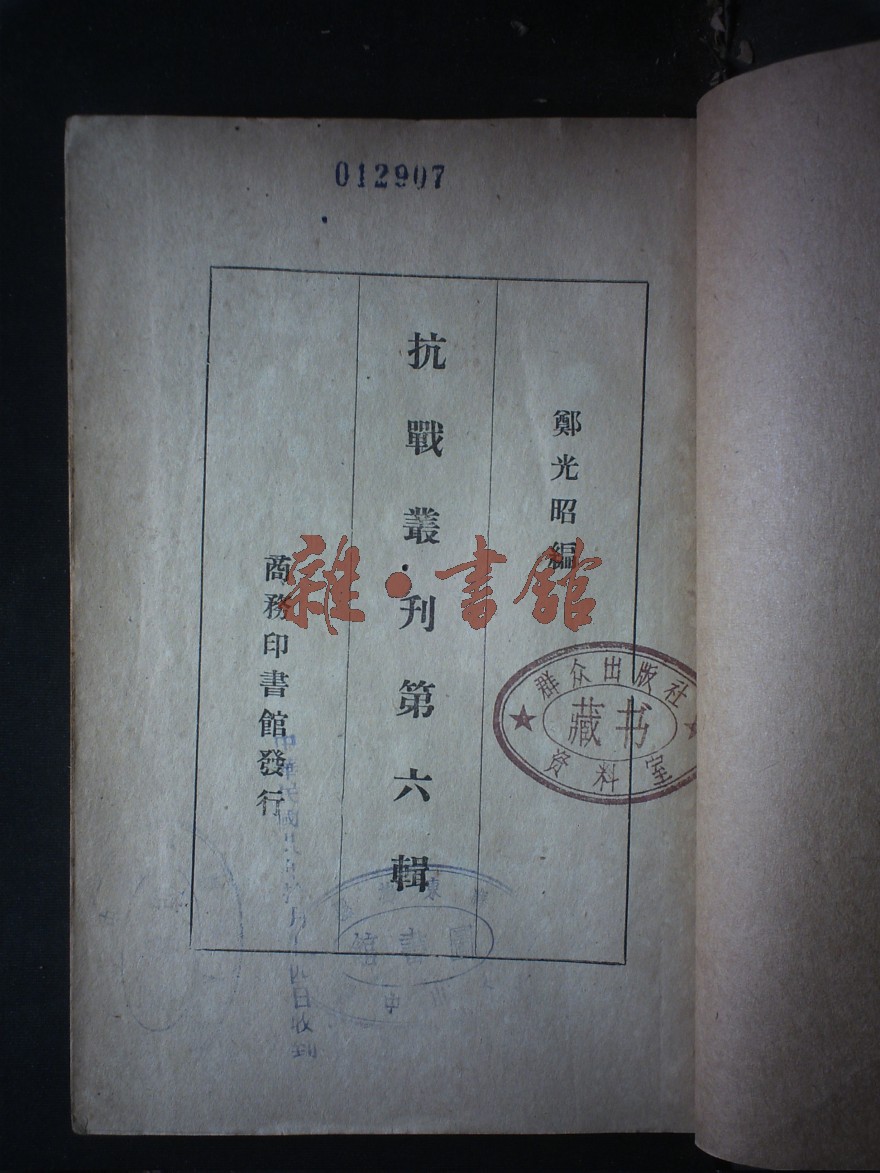 012907
鄭光昭編
抗戰叢刊第六輯
商務印書館發行
雜·書館
群众出版社
藏书
资料室
圖書館
中華民國
日收到